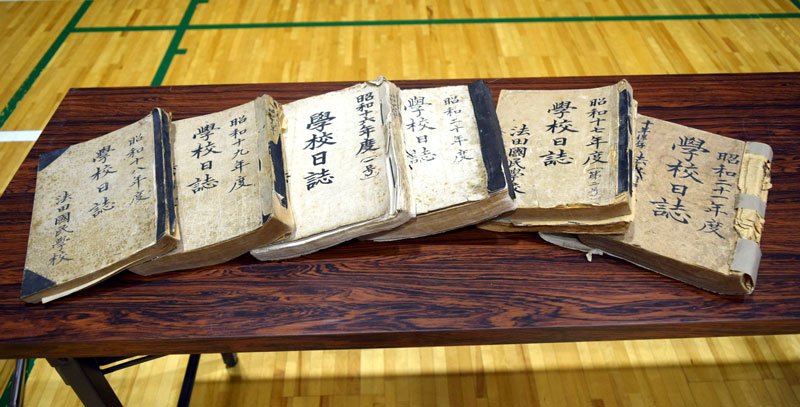 昭和十八年度
學校日誌
法田國民學校
昭和十九年度
學校日誌
昭和十六年度(一号)
學校日誌
昭和二十年度
學校日誌
昭和十七年度(第二号)
學校日誌
法田國民學校
昭和二十一年度
學校日誌